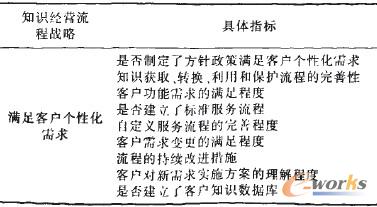 知识经营流
程战略
具体指标
满足客户个性化
需求
是否制定了方针政策满足客户个性化需求
知识获取、转换、利用和保护流程的完善性
客户功能需求的满足程度
是否建立了标准服务流程
自定义服务流程的完善程度
客户需求变更的满足程度
流程的持续改进措施
客户对新需求实施方案的理解程度
是否建立了客户知识数据库
e-works